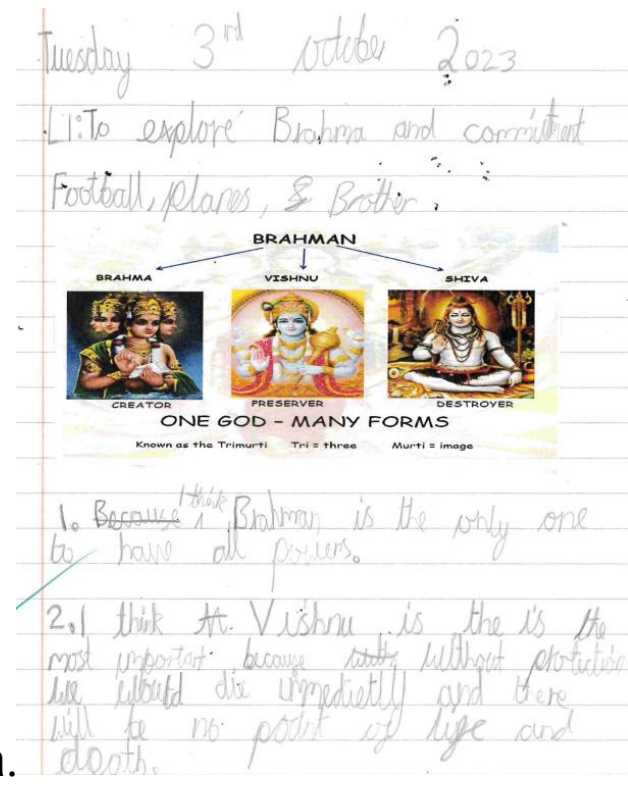 Tuesday 3rd october 2023
LI:To explore Brahma and commitment
Football, planes, & Brother.
BRAHMAN
BRAHMA VISHNU SHIVA
CREATOR PRESERVER DESTROYER
ONE GOD - MANY FORMS
Known as the Trimurti Tri = three Murti = image
1. Because I think Brahman is the only one
to have all powers.
2. I think Vishnu is the is the
most important because without protection
we would die immedietly and there
will be no point of life and
death.